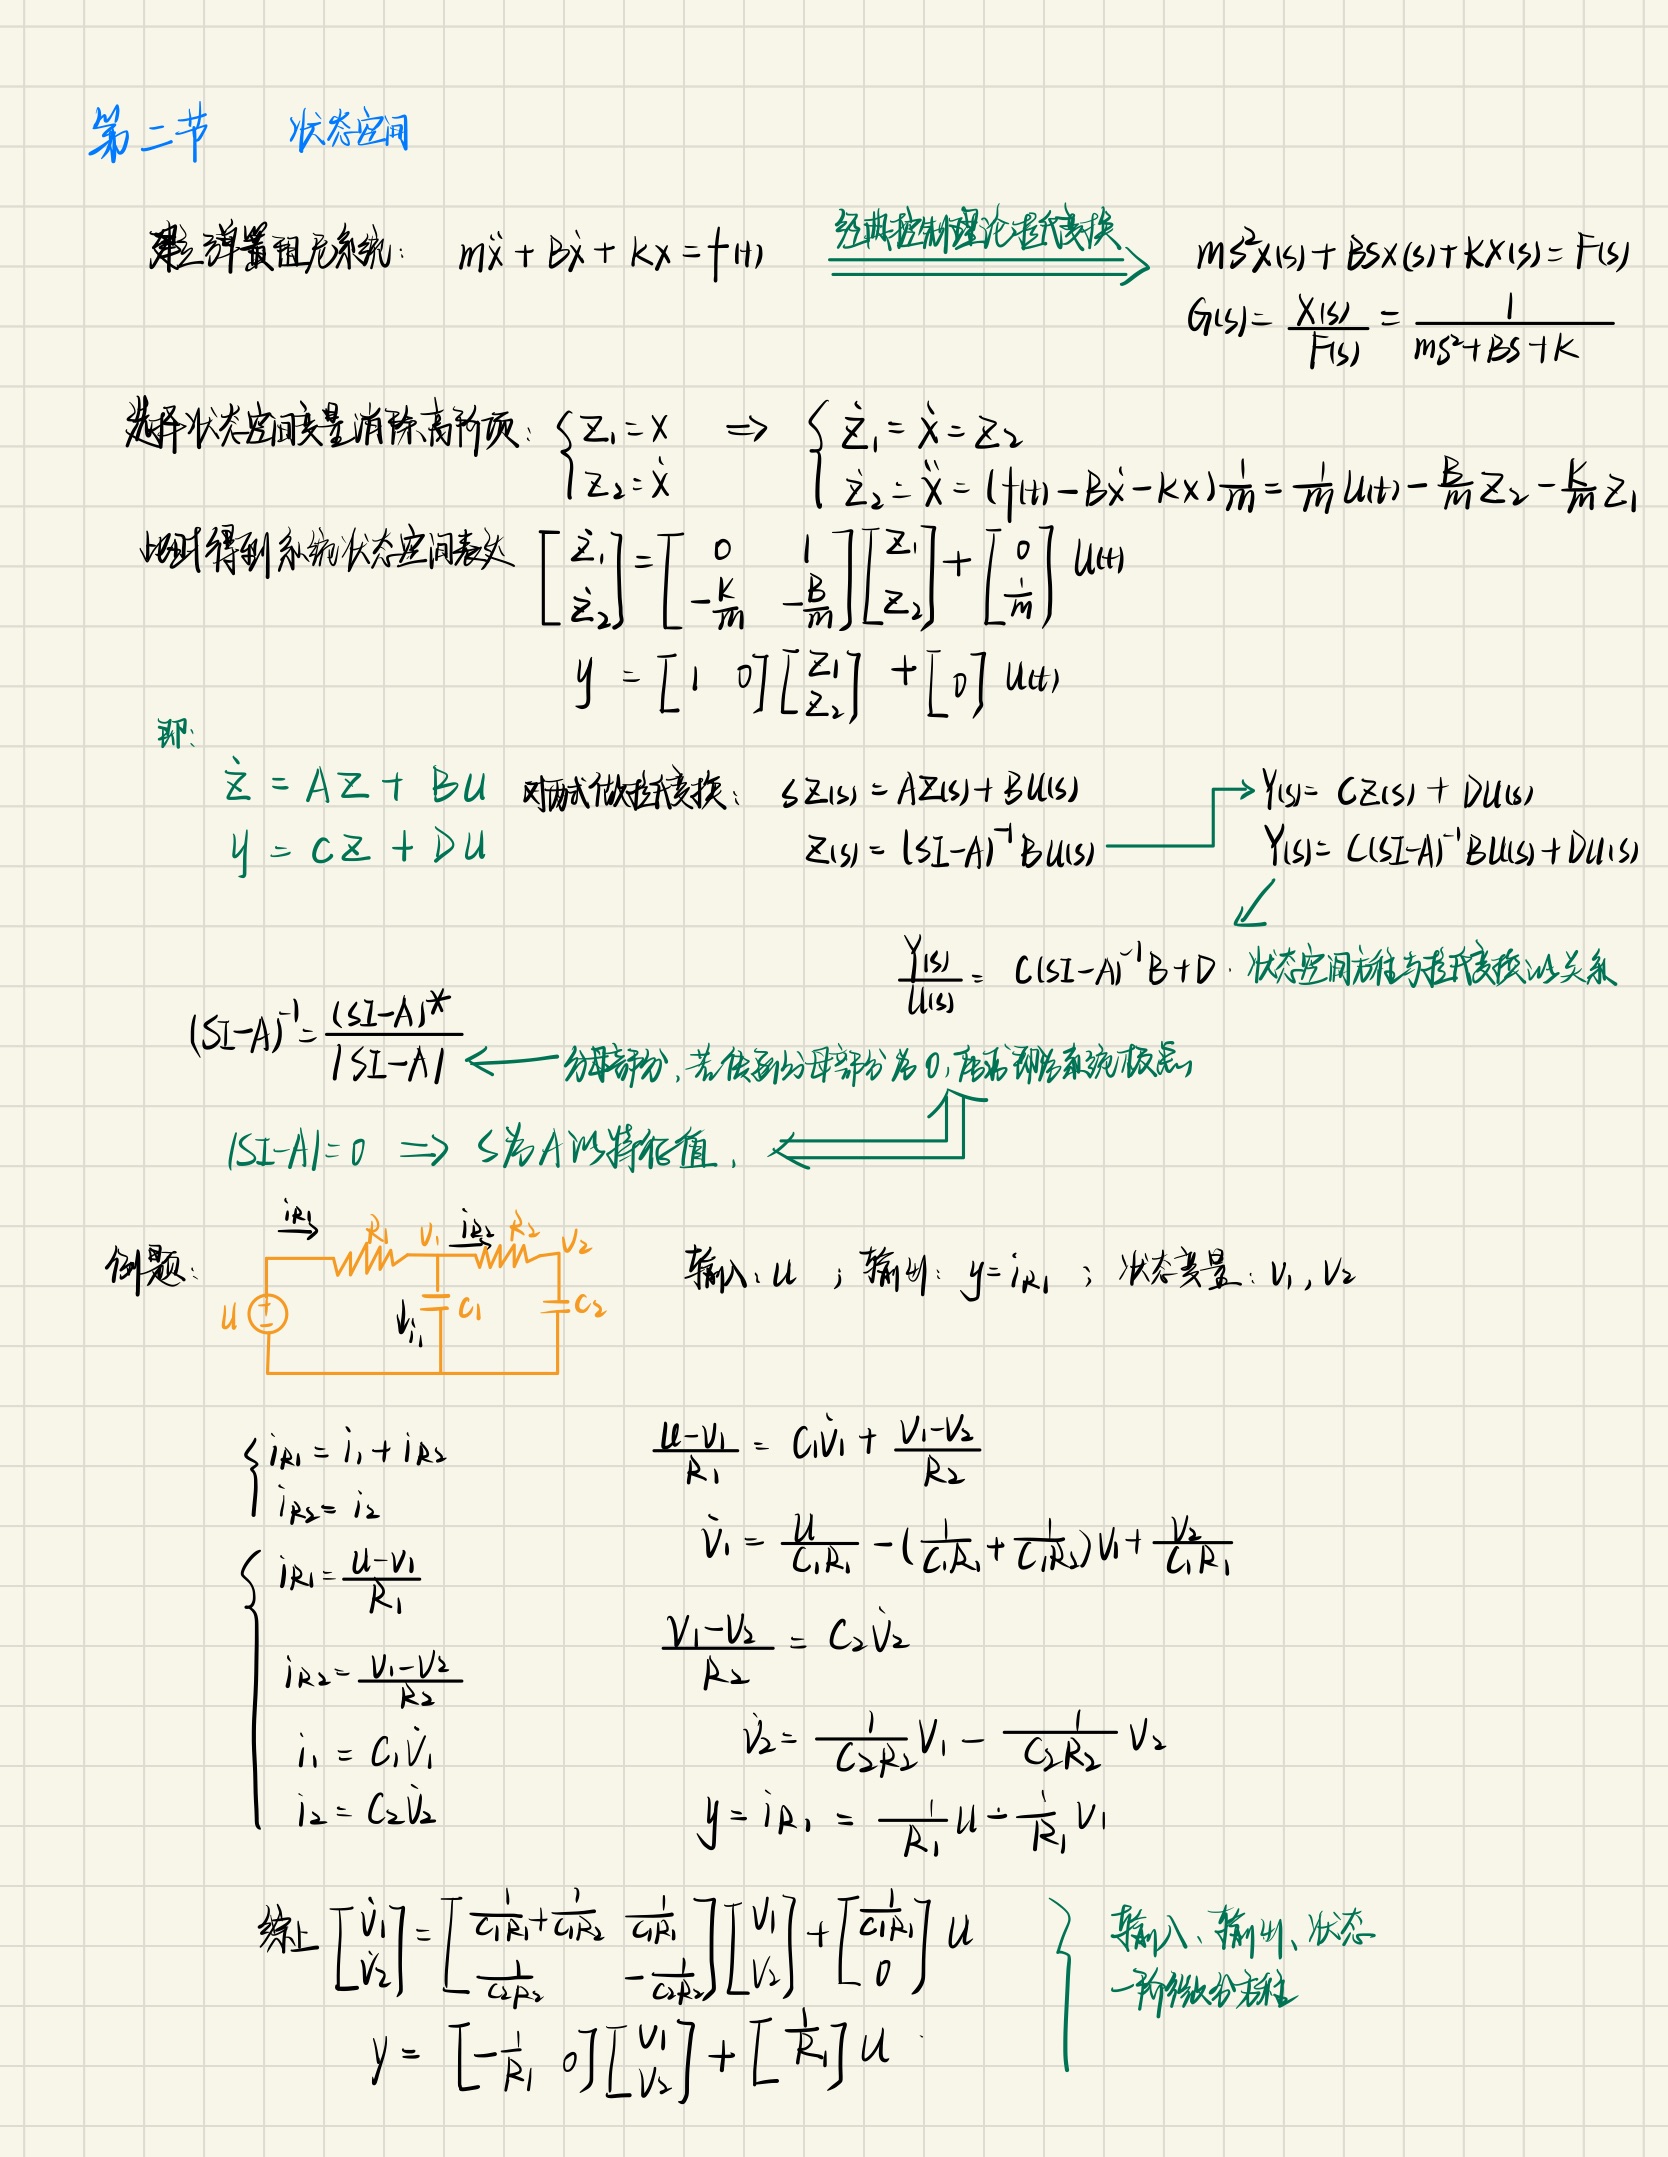 第二节 状态空间
建立弹簧阻尼系统: mẍ + Bẋ + kx = f(t) 经典控制理论拉氏变换 ms²X(s) + BSX(s) + kX(s) = F(s)
G(s) = X(s)/F(s) = 1/(ms²+Bs+k)
选择状态空间变量消除高阶项: { z₁ = x ⇒ { ż₁ = ẋ = z₂
z₂ = ẋ ż₂ = ẍ = (f(t) - Bẋ - kx) 1/m = 1/m u(t) - B/m z₂ - k/m z₁
此时得到系统状态空间表达 [ż₁; ż₂] = [0 1; -k/m -B/m] [z₁; z₂] + [0; 1/m] u(t)
y = [1 0] [z₁; z₂] + [0] u(t)
即:
ż = Az + Bu 对两式做拉氏变换: sZ(s) = AZ(s) + BU(s) → Y(s) = CZ(s) + DU(s)
y = Cz + Du Z(s) = (SI-A)⁻¹BU(s) Y(s) = C(SI-A)⁻¹BU(s) + DU(s)
Y(s)/U(s) = C(SI-A)⁻¹B + D. 状态空间方程与拉氏变换的关系
(SI-A)⁻¹ = (SI-A)*/|SI-A| ← 分母部分, 若使分母部分为0, 即为系统极点
|SI-A| = 0 ⇒ S为A的特征值.
例题: iR₁ R₁ V₁ iR₂ R₂ V₂ 输入: u ; 输出: y = iR₁ ; 状态变量: V₁, V₂
u + - i₁ C₁ C₂
{ iR₁ = i₁ + iR₂
iR₂ = i₂
{ iR₁ = (u-V₁)/R₁
iR₂ = (V₁-V₂)/R₂
i₁ = C₁V̇₁
i₂ = C₂V̇₂
(u-V₁)/R₁ = C₁V̇₁ + (V₁-V₂)/R₂
V̇₁ = u/(C₁R₁) - (1/(C₁R₁) + 1/(C₁R₂))V₁ + V₂/(C₁R₁)
(V₁-V₂)/R₂ = C₂V̇₂
V̇₂ = 1/(C₂R₂) V₁ - 1/(C₂R₂) V₂
y = iR₁ = 1/R₁ u - 1/R₁ V₁
综上 [V̇₁; V̇₂] = [1/(C₁R₁)+1/(C₁R₂) 1/(C₁R₁); 1/(C₂R₂) -1/(C₂R₂)] [V₁; V₂] + [1/(C₁R₁); 0] u
y = [-1/R₁ 0] [V₁; V₂] + [1/R₁] u
输入、输出、状态
一阶微分方程